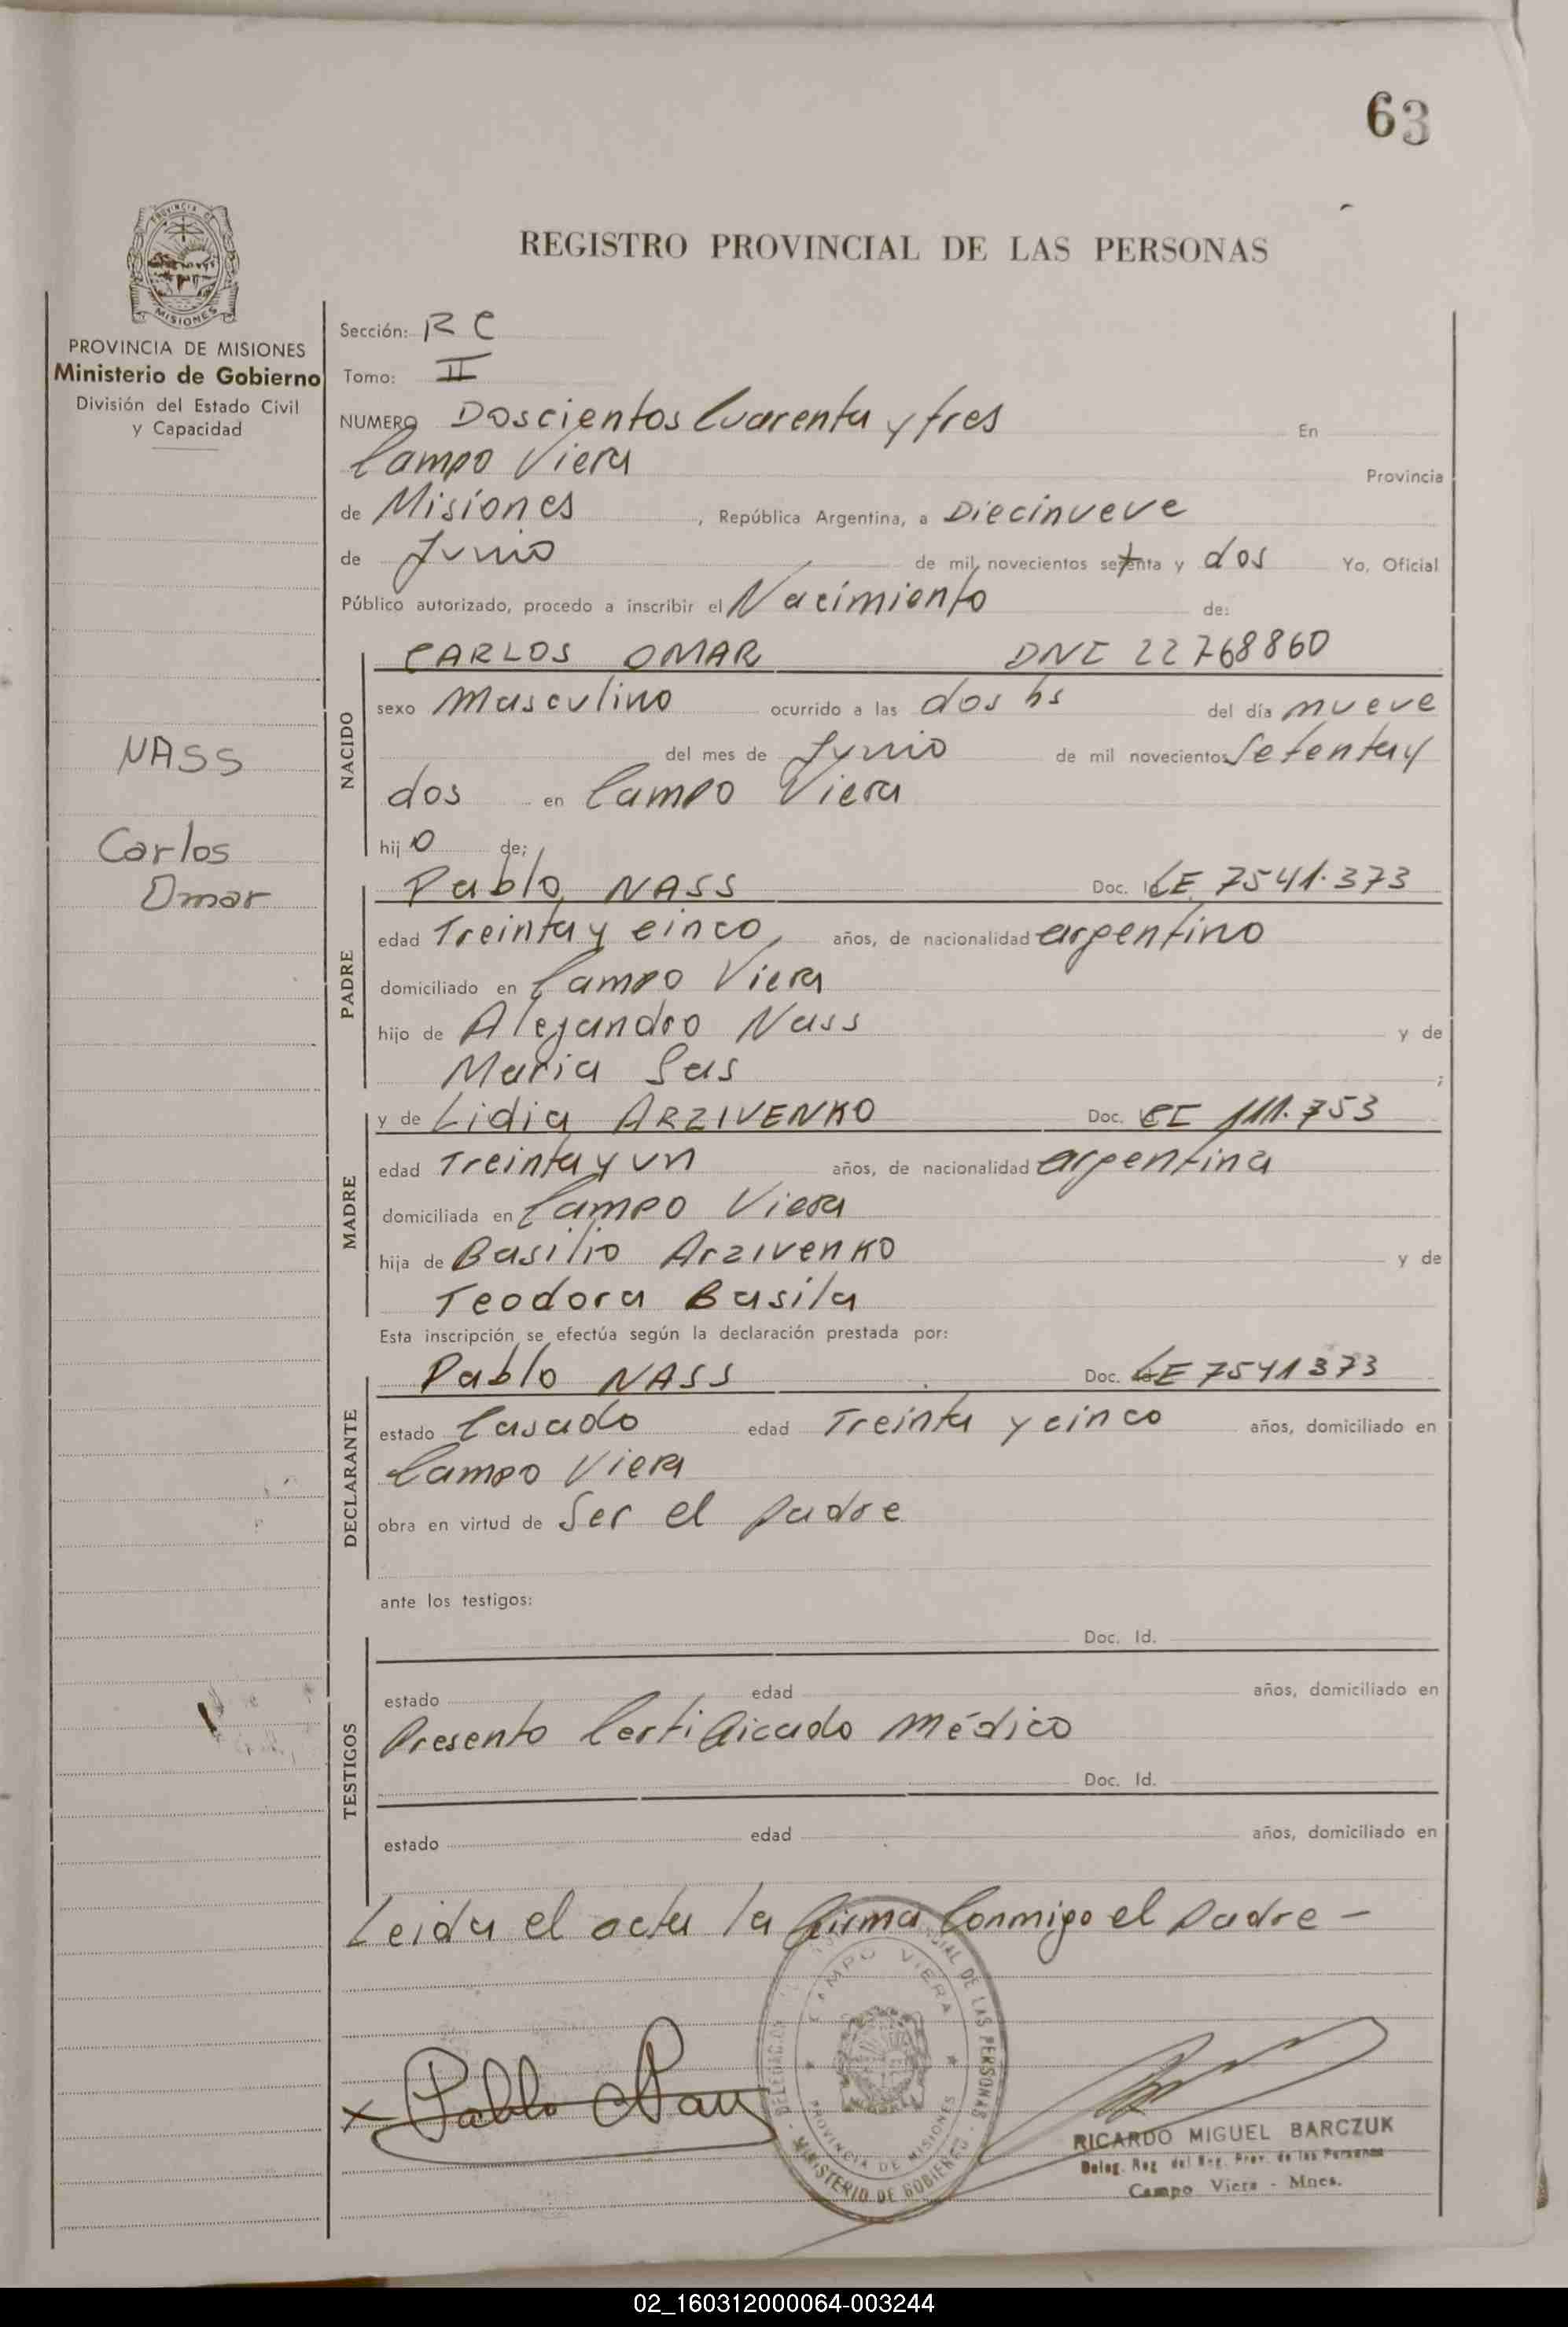 63
PROVINCIA DE
MISIONES
REGISTRO PROVINCIAL DE LAS PERSONAS
PROVINCIA DE MISIONES
Ministerio de Gobierno
División del Estado Civil
y Capacidad
NASS
Carlos
Omar
Sección: RC
Tomo: II
NUMERO Doscientos Cuarenta y tres En
Campo Viera Provincia
de Misiones, República Argentina, a Diecinueve
de Junio de mil novecientos setenta y dos Yo, Oficial
Público autorizado, procedo a inscribir el Nacimiento de:
NACIDO
CARLOS OMAR DNI 22768860
sexo Masculino ocurrido a las dos hs del día nueve
del mes de Junio de mil novecientos Setenta y
dos en Campo Viera
hijo de;
PADRE
Pablo NASS Doc. LE 7541.373
edad Treinta y cinco, años, de nacionalidad argentino
domiciliado en Campo Viera
hijo de Alejandro Nass y de
Maria Sas ;
MADRE
y de Lidia ARZIVENKO Doc. CI 111.753
edad Treinta y un años, de nacionalidad argentina
domiciliada en Campo Viera
hija de Basilio Arzivenko y de
Teodora Basila
Esta inscripción se efectúa según la declaración prestada por:
DECLARANTE
Pablo NASS Doc. LE 7541373
estado Casado edad Treinta y cinco años, domiciliado en
Campo Viera
obra en virtud de Ser el padre
ante los testigos:
TESTIGOS
Doc. Id.
estado edad años, domiciliado en
Presento Certificado Médico
Doc. Id.
estado edad años, domiciliado en
Leida el acta la firma Conmigo el padre —
x Pablo Nass
CAMPO VIERA
PROVINCIA DE MISIONES
MINISTERIO DE GOBIERNO - DELEGACION DE LAS PERSONAS
RICARDO MIGUEL BARCZUK
Deleg. Reg del Reg. Prov. de las Personas
Campo Viera - Mnes.
02_160312000064-003244